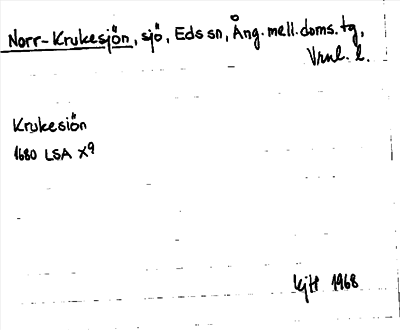 Norr-Krukesjön, sjö, Eds sn, Ång. mell. doms. tg,
Vrnl. l.
Krukesiön
1680 LSA X9
KjH 1968